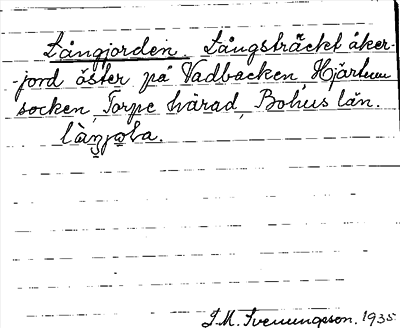 Långjorden. Långsträckt åker-
jord öster på Vadbacken, Hjärtum
socken, Torpe härad, Bohus län.
J.M. Svenungsson. 1935